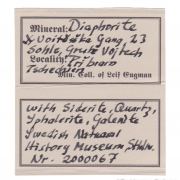 Mineral: Diaphorite
x Voitěška Gang 23
Sohle, Grube Vojtech
Locality: Příbram
Tschechien
Min. Coll. of Leif Engman
with Siderite, Quartz,
Sphalerite, Galenite
Swedish Natural
History Museum, Sthlm.
Nr. 2000067